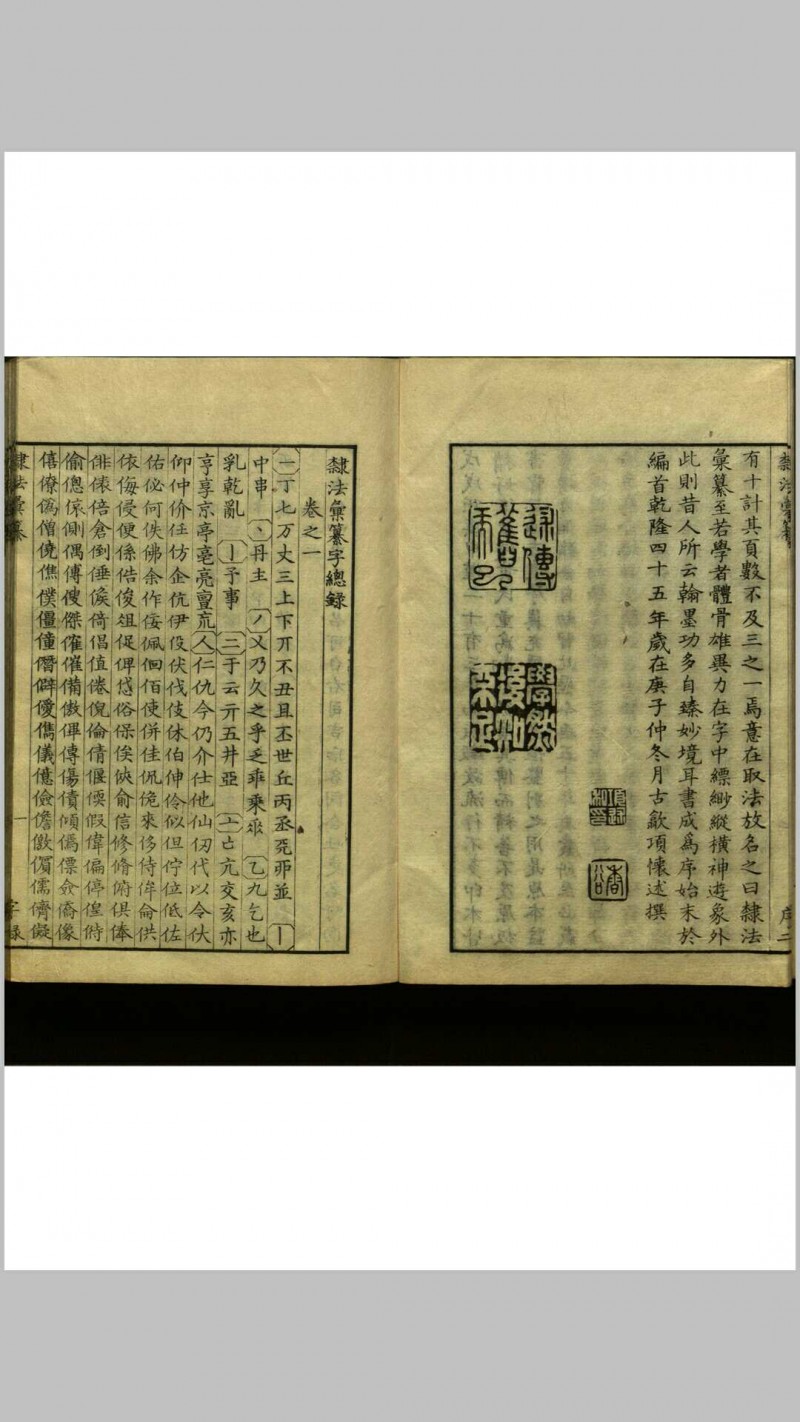 隸法彙纂
序二
有十計其頁數不及三之一焉意在取法故名之曰隸法
彙纂至若學者體骨雄異力在字中縹緲縱橫神遊象外
此則昔人所云翰墨功多自臻妙境耳書成為序始末於
編首乾隆四十五年歲在庚子仲冬月古歙項懷述撰
隸法彙纂字總錄
卷之一
一丁七万丈三上下丌不丑且丕世丘丙丞並丨
中串丶丹主丿乂乃久之乎乏乖乘乙九乞也
乳乾亂亅予事二于云亓五井亞亠亡亢交亥亦
亨享京亭亳亮亶人仁仇今仍介仕他仙仞代以令伏
仰仲价任仿企伉伊伋伏伐伎休伯伸伶似但佇位低佐
佑佖何佚佛余作佞佩佪佰使併佳佹來侈侍侔侖供
依侮侵便係俈俊俎促俾俗保俟俠俞信修脩俯俱俸
俳俵倍倉倒倕候倚倡值倦倪倫倩偃偄假偉偏停偟偫
偷傯側偶傅傁傑催備傲傳傷僨傾僞僄僉僑像
僖僚僞僧僥僬僕僵僮僭僻優儁儀億儉儋儆儒儕儗
隸法彙纂
一
字錄